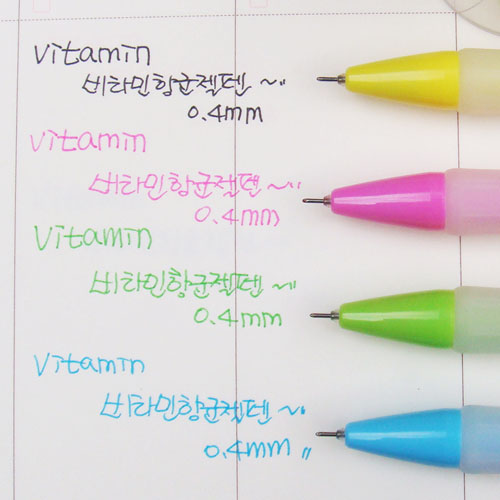 vitamin
비타민항균젤펜 ~..
0.4mm
vitamin
비타민항균젤펜 ~..
0.4mm
vitamin
비타민항균젤펜 ~..
0.4mm
vitamin
비타민항균젤펜 ~..
0.4mm "